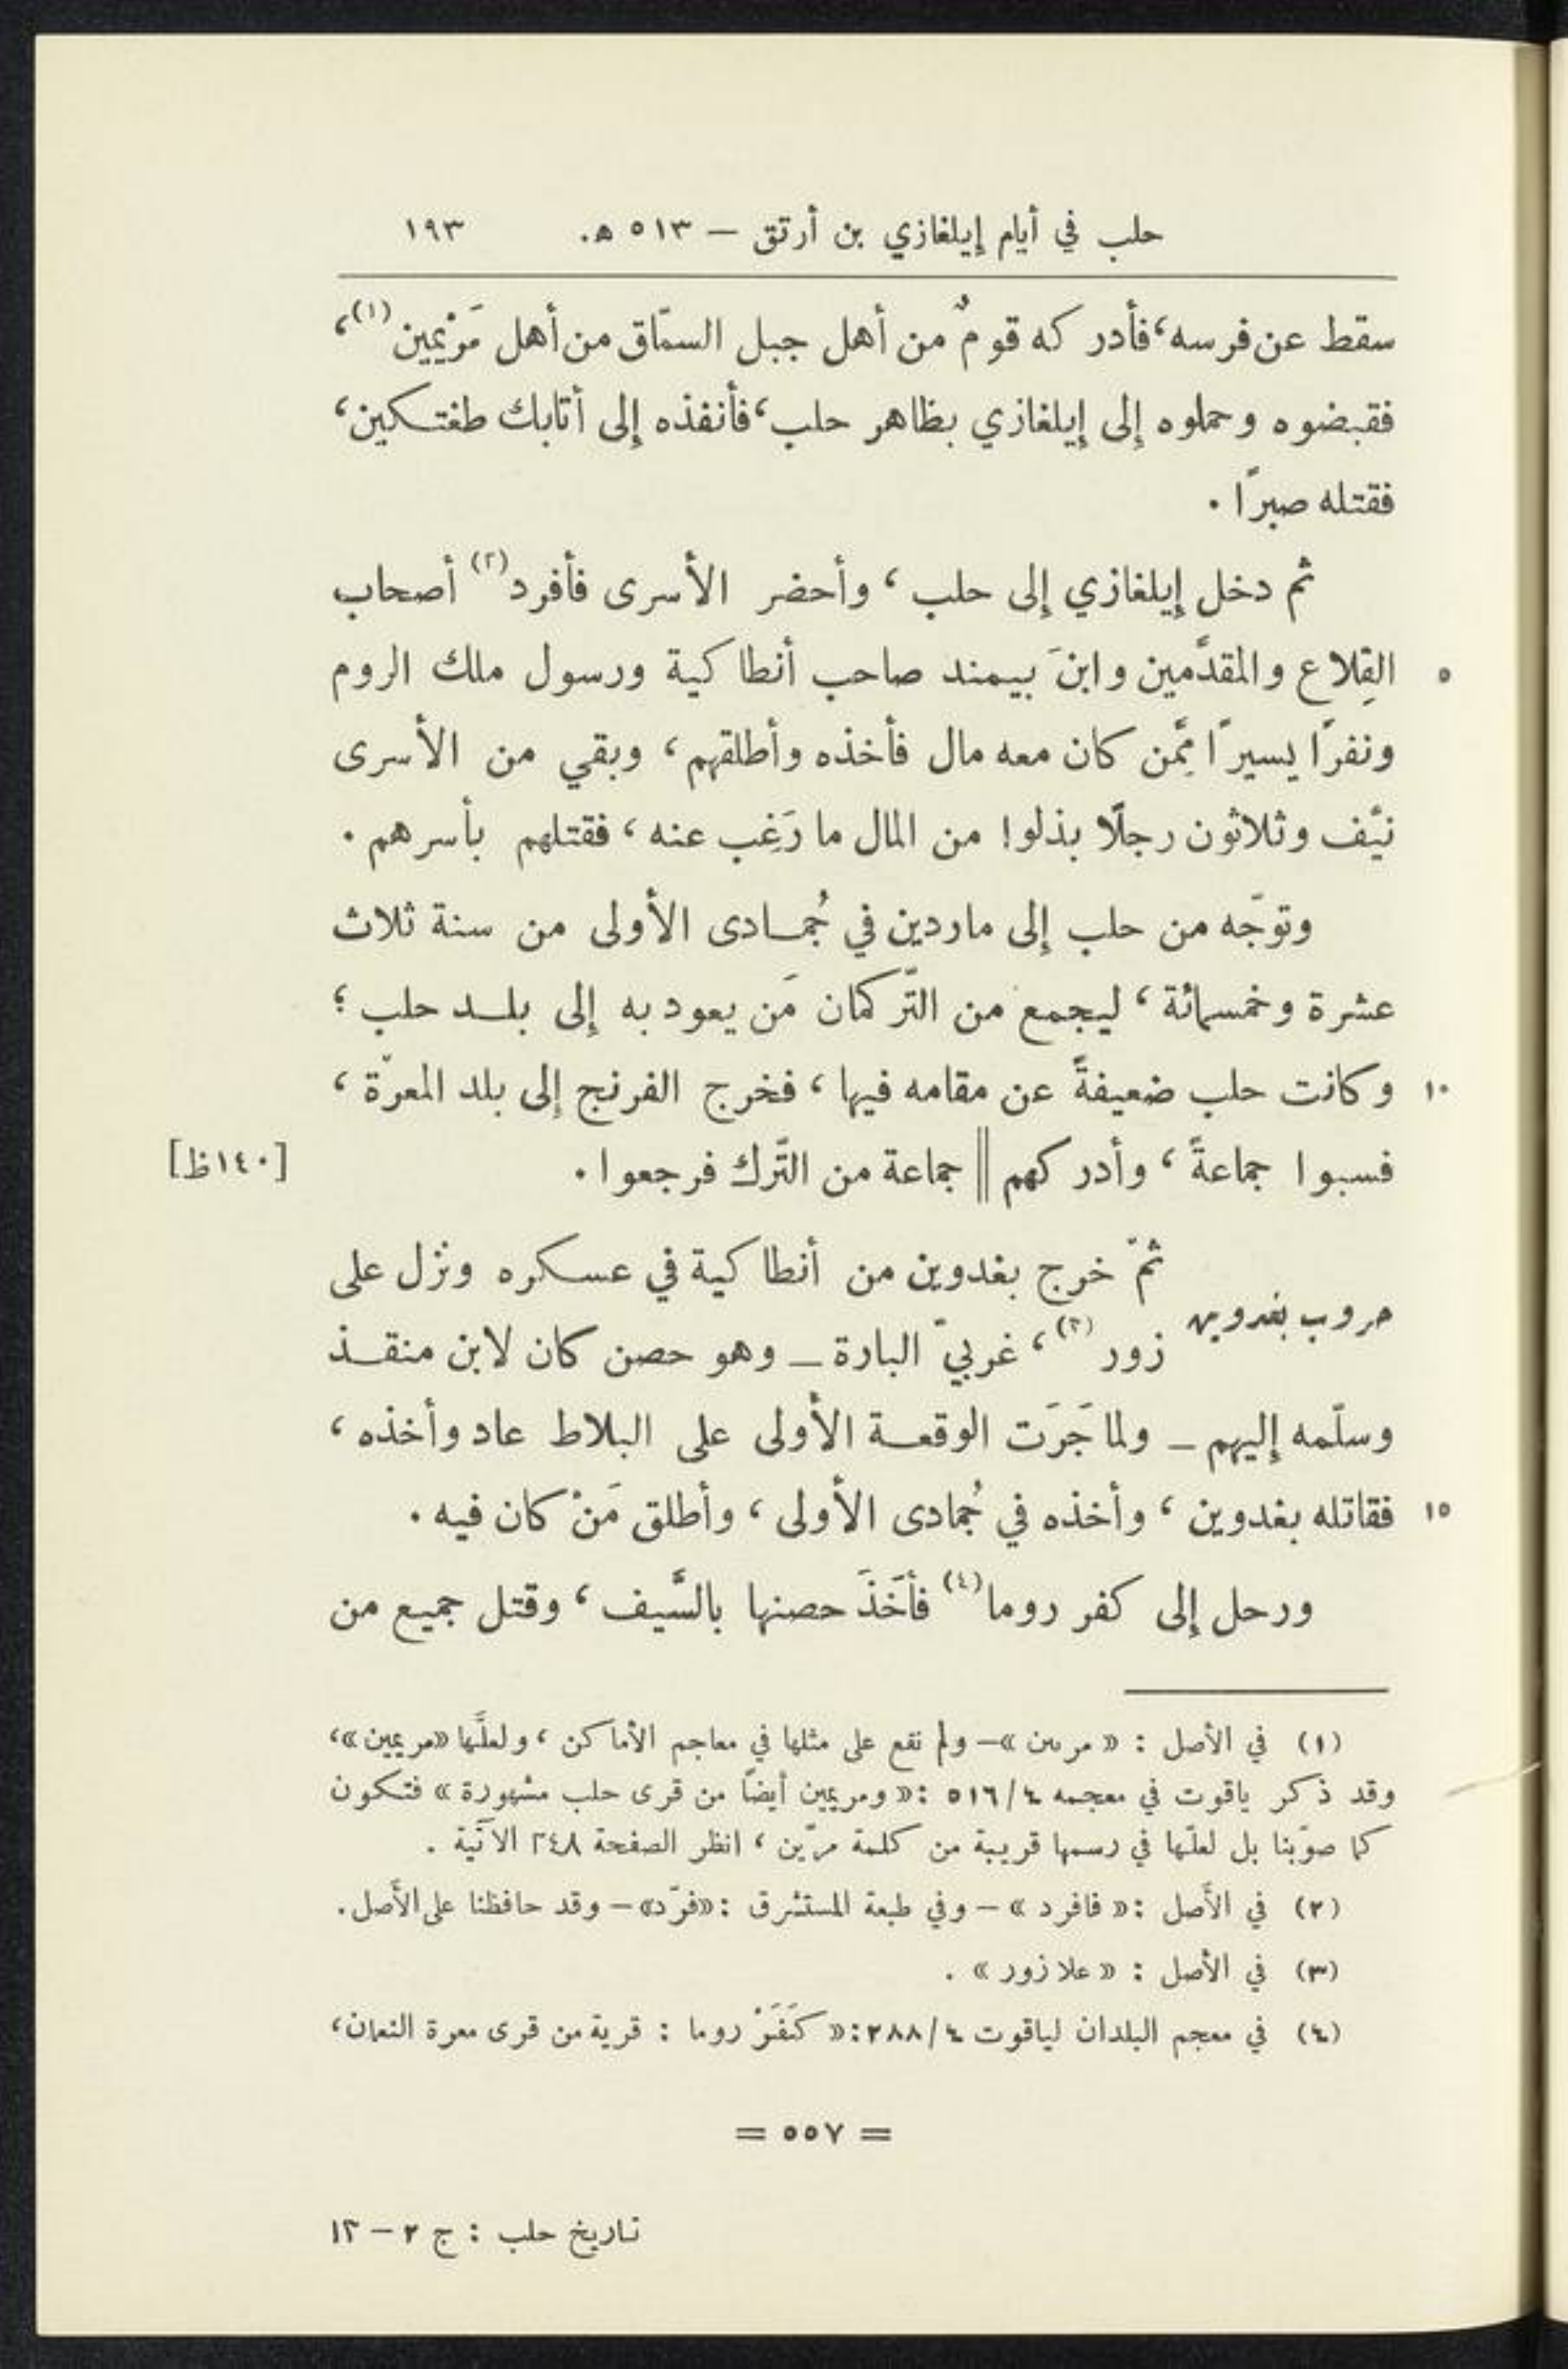 حلب في أيام إيلغازي بن أرتق – ٥١٣ ه. ١٩٣
سقط عن فرسه، فأدركه قومٌ من أهل جبل السمّاق من أهل مَرْيمين(١)،
فقبضوه وحملوه إلى إيلغازي بظاهر حلب، فأنفذه إلى أتابك طغتكين،
فقتله صبرًا.
ثم دخل إيلغازي إلى حلب، وأحضر الأسرى فأفرد(٢) أصحاب
٥ القِلاع والمقدَّمين وابنَ بيمند صاحب أنطاكية ورسول ملك الروم
ونفرًا يسيرًا مِمَّن كان معه مال فأخذه وأطلقهم، وبقي من الأسرى
نيّف وثلاثون رجلًا بذلوا من المال ما رَغِب عنه، فقتلهم بأسرهم.
وتوجّه من حلب إلى ماردين في جُمادى الأولى من سنة ثلاث
عشرة وخمسمائة، ليجمع من التّركمان مَن يعود به إلى بلد حلب؛
١٠ وكانت حلب ضعيفةً عن مقامه فيها، فخرج الفرنج إلى بلد المعرّة،
فسبوا جماعةً، وأدركهم || جماعة من التّرك فرجعوا. [١٤٠ظ]
حروب بغدوين
ثمّ خرج بغدوين من أنطاكية في عسكره ونزل على
زور(٣)، غربيّ البارة – وهو حصن كان لابن منقذ
وسلّمه إليهم – ولما جَرَت الوقعة الأولى على البلاط عاد وأخذه،
١٥ فقاتله بغدوين، وأخذه في جُمادى الأولى، وأطلق مَنْ كان فيه.
ورحل إلى كفر روما(٤) فأَخَذَ حصنها بالسَّيف، وقتل جميع من
(١) في الأصل : «مرىىں» – ولم نقع على مثلها في معاجم الأماكن، ولعلَّها «مريمين»،
وقد ذكر ياقوت في معجمه ٥١٦/٤ : «ومريمين أيضًا من قرى حلب مشهورة» فتكون
كما صوّبنا بل لعلّها في رسمها قريبة من كلمة مرّين، انظر الصفحة ٢٤٨ الآتية.
(٢) في الأَصل : «فافرد» – وفي طبعة المستشرق : «فرّد» – وقد حافظنا على الأَصل.
(٣) في الأصل : «علا زور».
(٤) في معجم البلدان لياقوت ٢٨٨/٤ : «كَفَرْ روما : قرية من قرى معرة النعمان،
= ٥٥٧ =
تاريخ حلب : ج ٢ – ١٣